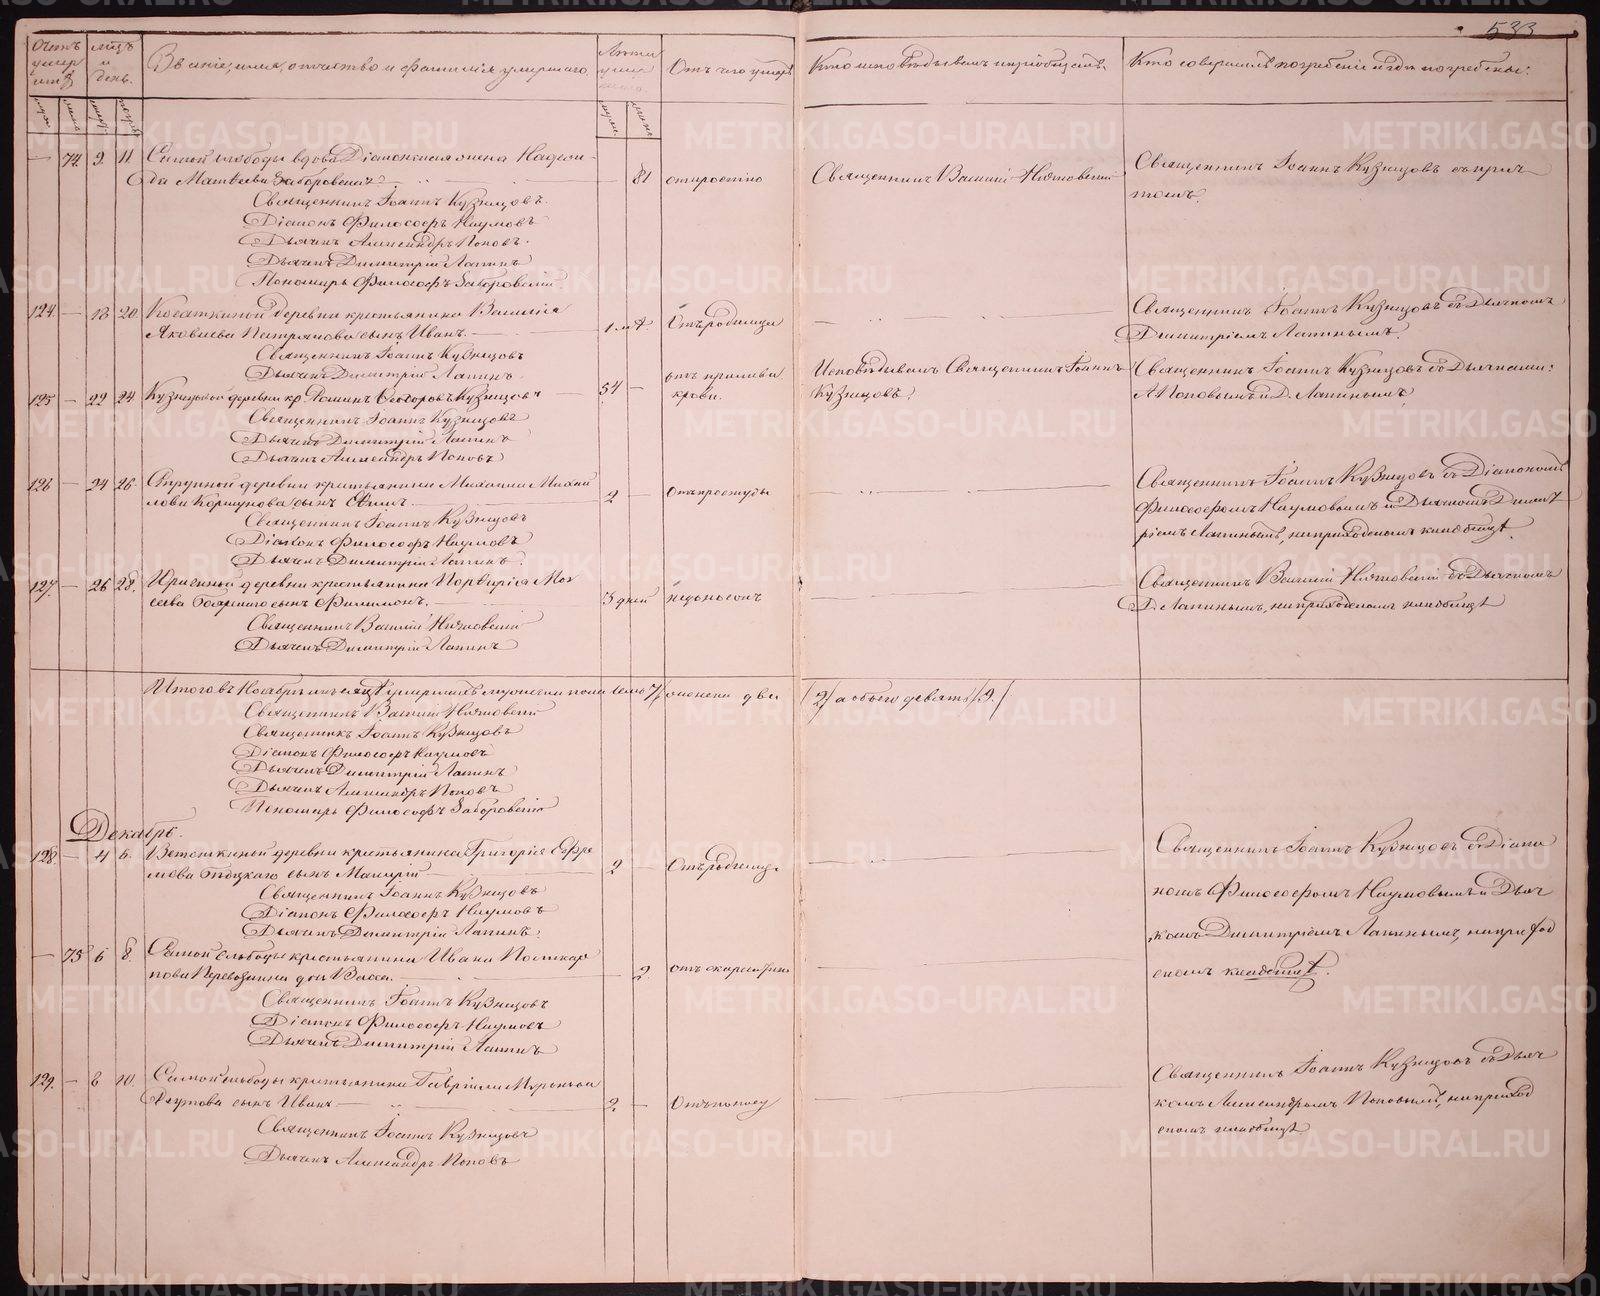 533
Счетъ умершихъ
Мѣсяцъ и день.
Званіе, имя, отчество и фамилія умершаго.
Лѣта умершаго
Отъ чего умеръ
Кто исповѣдывалъ и пріобщалъ.
Кто совершалъ погребеніе и гдѣ погребены.
— 74. 9. 11. Самой слободы вдова Діаконская жена Надеж-
да Матвѣева Заборовская — 81 отъ старости
Священникъ Василій
Священникъ Іоаннъ Кузнецовъ съ прич-
томъ.
Священникъ Іоаннъ Кузнецовъ.
Діаконъ Философъ Наумовъ
Дьячекъ Александръ Поповъ.
Дьячекъ Димитрій Лапинъ
Пономарь Философъ Заборовскій
124. — 18 20. деревни крестьянина Василія
Яковлева сынъ Иванъ. — 1 м. Отъ родимца
Священникъ Іоаннъ Кузнецовъ съ Дьячкомъ
Димитріемъ Лапинымъ.
Священникъ Іоаннъ Кузнецовъ
Дьячекъ Димитрій Лапинъ.
125 — 22 24 Кузнецовой деревни кр. Ѳеодоровъ Кузнецовъ — 54 — отъ прилива
крови.
Исповѣдывалъ Священникъ Іоаннъ
Кузнецовъ.
Священникъ Іоаннъ Кузнецовъ съ Дьячками:
А. Поповымъ и Д. Лапинымъ
Священникъ Іоаннъ Кузнецовъ
Дьячекъ Димитрій Лапинъ
Дьячекъ Александръ Поповъ
126 — 24 26. деревни крестьянина Михаила Михай
лова Коршунова сынъ — 2 — Отъ простуды
Священникъ Іоаннъ Кузнецовъ съ Діакономъ
Философомъ Наумовымъ и Дьячкомъ Димит
ріемъ Лапинымъ, на приходскомъ кладбищѣ.
Священникъ Іоаннъ Кузнецовъ
Діаконъ Философъ Наумовъ
Дьячекъ Димитрій Лапинъ.
127. — 26 28. деревни крестьянина Порфирія Мои
сеева сынъ Филимонъ. — 3 дней недоносокъ
Священникъ Василій съ Дьячкомъ
Д. Лапинымъ, на приходскомъ кладбищѣ
Священникъ Василій
Дьячекъ Димитрій Лапинъ
Итого въ Ноябрѣ мѣсяцѣ умершихъ мужеска пола семь /7/ женска два /2/ а обоего девять /9./
Священникъ Василій
Священникъ Іоаннъ Кузнецовъ
Діаконъ Философъ Наумовъ
Дьячекъ Димитрій Лапинъ
Дьячекъ Александръ Поповъ
Пономарь Философъ Заборовскій
Декабрь.
128. — 4 6. деревни крестьянина Григорія Ефре
мова сынъ — 2 — Отъ родимца
Священникъ Іоаннъ Кузнецовъ съ Діако
номъ Философомъ Наумовымъ и Дьяч
комъ Димитріемъ Лапинымъ, на приход
скомъ кладбищѣ.
Священникъ Іоаннъ Кузнецовъ
Діаконъ Философъ Наумовъ
Дьячекъ Димитрій Лапинъ.
— 75 6 8. Самой слободы крестьянина Ивана Поликар
пова дочь Васса. — 2. отъ скарлатины
Священникъ Іоаннъ Кузнецовъ
Діаконъ Философъ Наумовъ
Дьячекъ Димитрій Лапинъ
129. — 8 10. Самой слободы крестьянина Гавріила
сынъ Иванъ — 2. — Отъ поносу
Священникъ Іоаннъ Кузнецовъ съ Дьяч
комъ Александромъ Поповымъ, на приход
скомъ кладбищѣ
Священникъ Іоаннъ Кузнецовъ
Дьячекъ Александръ Поповъ
METRIKI.GASO-URAL.RU